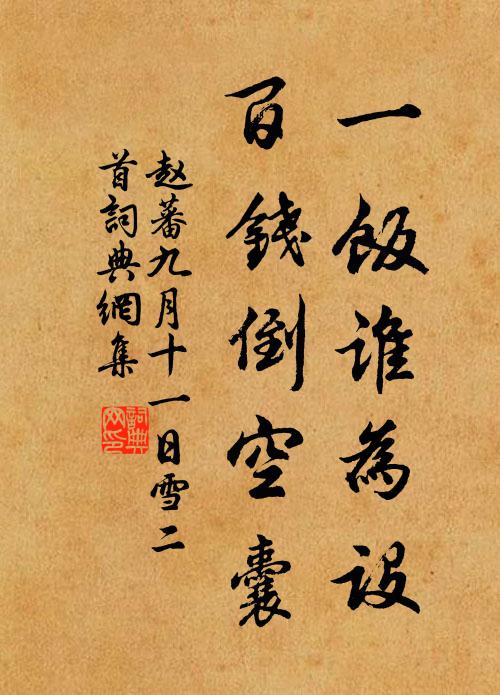 一飯誰為設
百錢倒空囊
赵蕃九月十一日雪二
首詞典網集
詞典网印